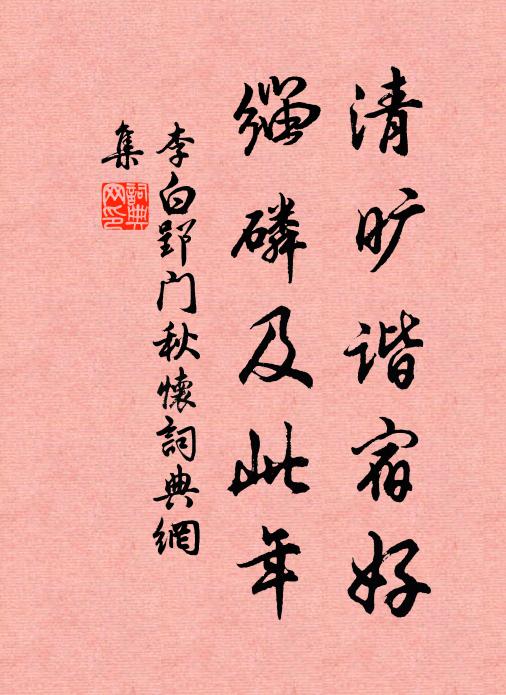 清旷谐宿好
缁磷及此年
李白郢门秋懷詞典網
集
詞典
网印